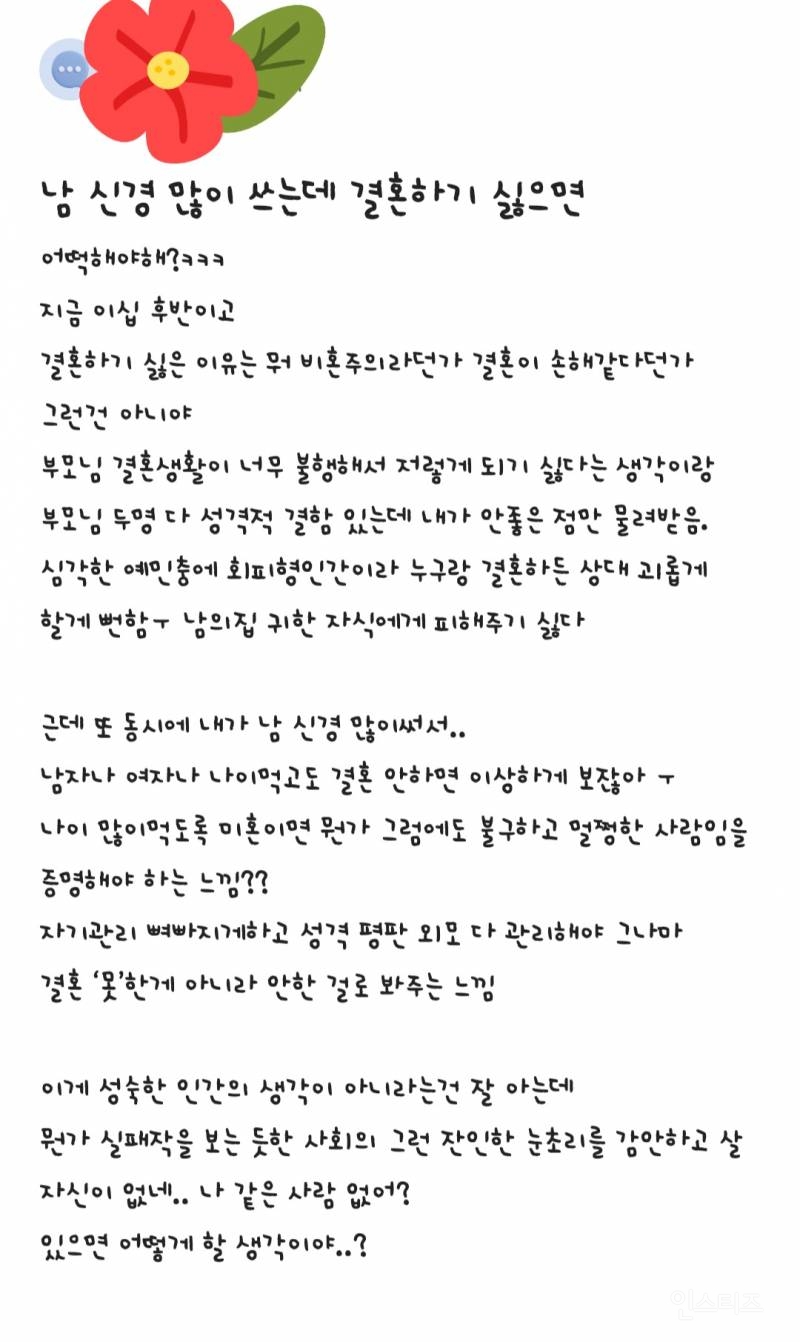 남 신경 많이 쓰는데 결혼하기 싫으면
어떡해야해?ㅋㅋㅋ
지금 이십 후반이고
결혼하기 싫은 이유는 뭐 비혼주의라던가 결혼이 손해같다던가
그런건 아니야
부모님 결혼생활이 너무 불행해서 저렇게 되기 싫다는 생각이랑
부모님 두명 다 성격적 결함 있는데 내가 안좋은 점만 물려받음.
심각한 예민충에 회피형인간이라 누구랑 결혼하든 상대 괴롭게
할게 뻔함ㅜ 남의집 귀한 자식에게 피해주기 싫다
근데 또 동시에 내가 남 신경 많이써서..
남자나 여자나 나이먹고도 결혼 안하면 이상하게 보잖아 ㅜ
나이 많이먹도록 미혼이면 뭔가 그럼에도 불구하고 멀쩡한 사람임을
증명해야 하는 느낌??
자기관리 뼈빠지게하고 성격 평판 외모 다 관리해야 그나마
결혼 ‘못’한게 아니라 안한 걸로 봐주는 느낌
이게 성숙한 인간의 생각이 아니라는건 잘 아는데
뭔가 실패작을 보는 듯한 사회의 그런 잔인한 눈초리를 감안하고 살
자신이 없네.. 나 같은 사람 없어?
있으면 어떻게 할 생각이야..?
인스티즈